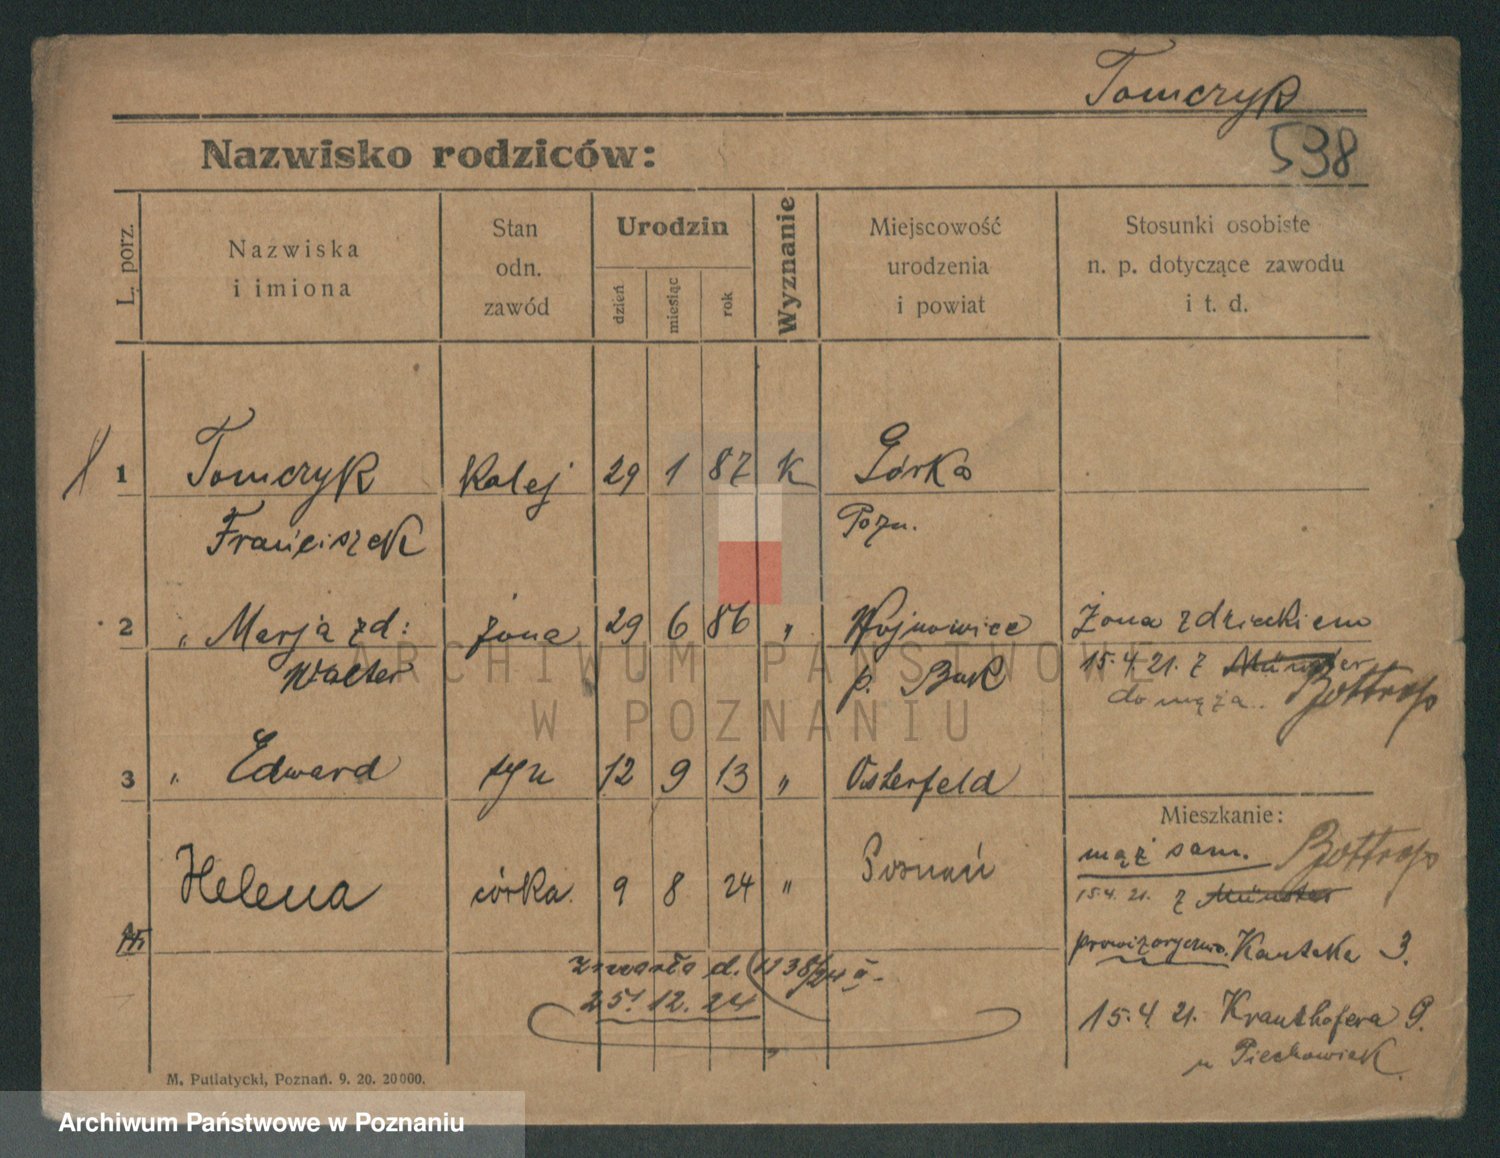 Tomczyk
538
Nazwisko rodziców:
L. porz.
Nazwiska
i imiona
Stan
odn.
zawód
Urodzin
dzień
miesiąc
rok
Wyznanie
Miejscowość
urodzenia
i powiat
Stosunki osobiste
n. p. dotyczące zawodu
i t. d.
1 Tomczyk Kolej 29 1 87 K Górka
Franciszek Pozn.
2 „ Marja zd: żona 29 6 86 „ Wojnowice żona z dzieckiem
Walter p. Buk 15.4.21. z Münster Bottrop
do męża..
3 „ Edward syn 12 9 13 „ Osterfeld
Mieszkanie:
Helena córka. 9 8 24 „ Poznań
mąż sam. Bottrop
15.4.21. z Münster
prowizorycznie. Kantaka 3.
zmarła d. 1138/24
25. 12. 24
15. 4. 21. Kranthofera 9.
u Piechowiak
M. Putiatycki, Poznań. 9. 20. 20000.
ARCHIWUM PAŃSTWOWE
W POZNANIU
Archiwum Państwowe w Poznaniu